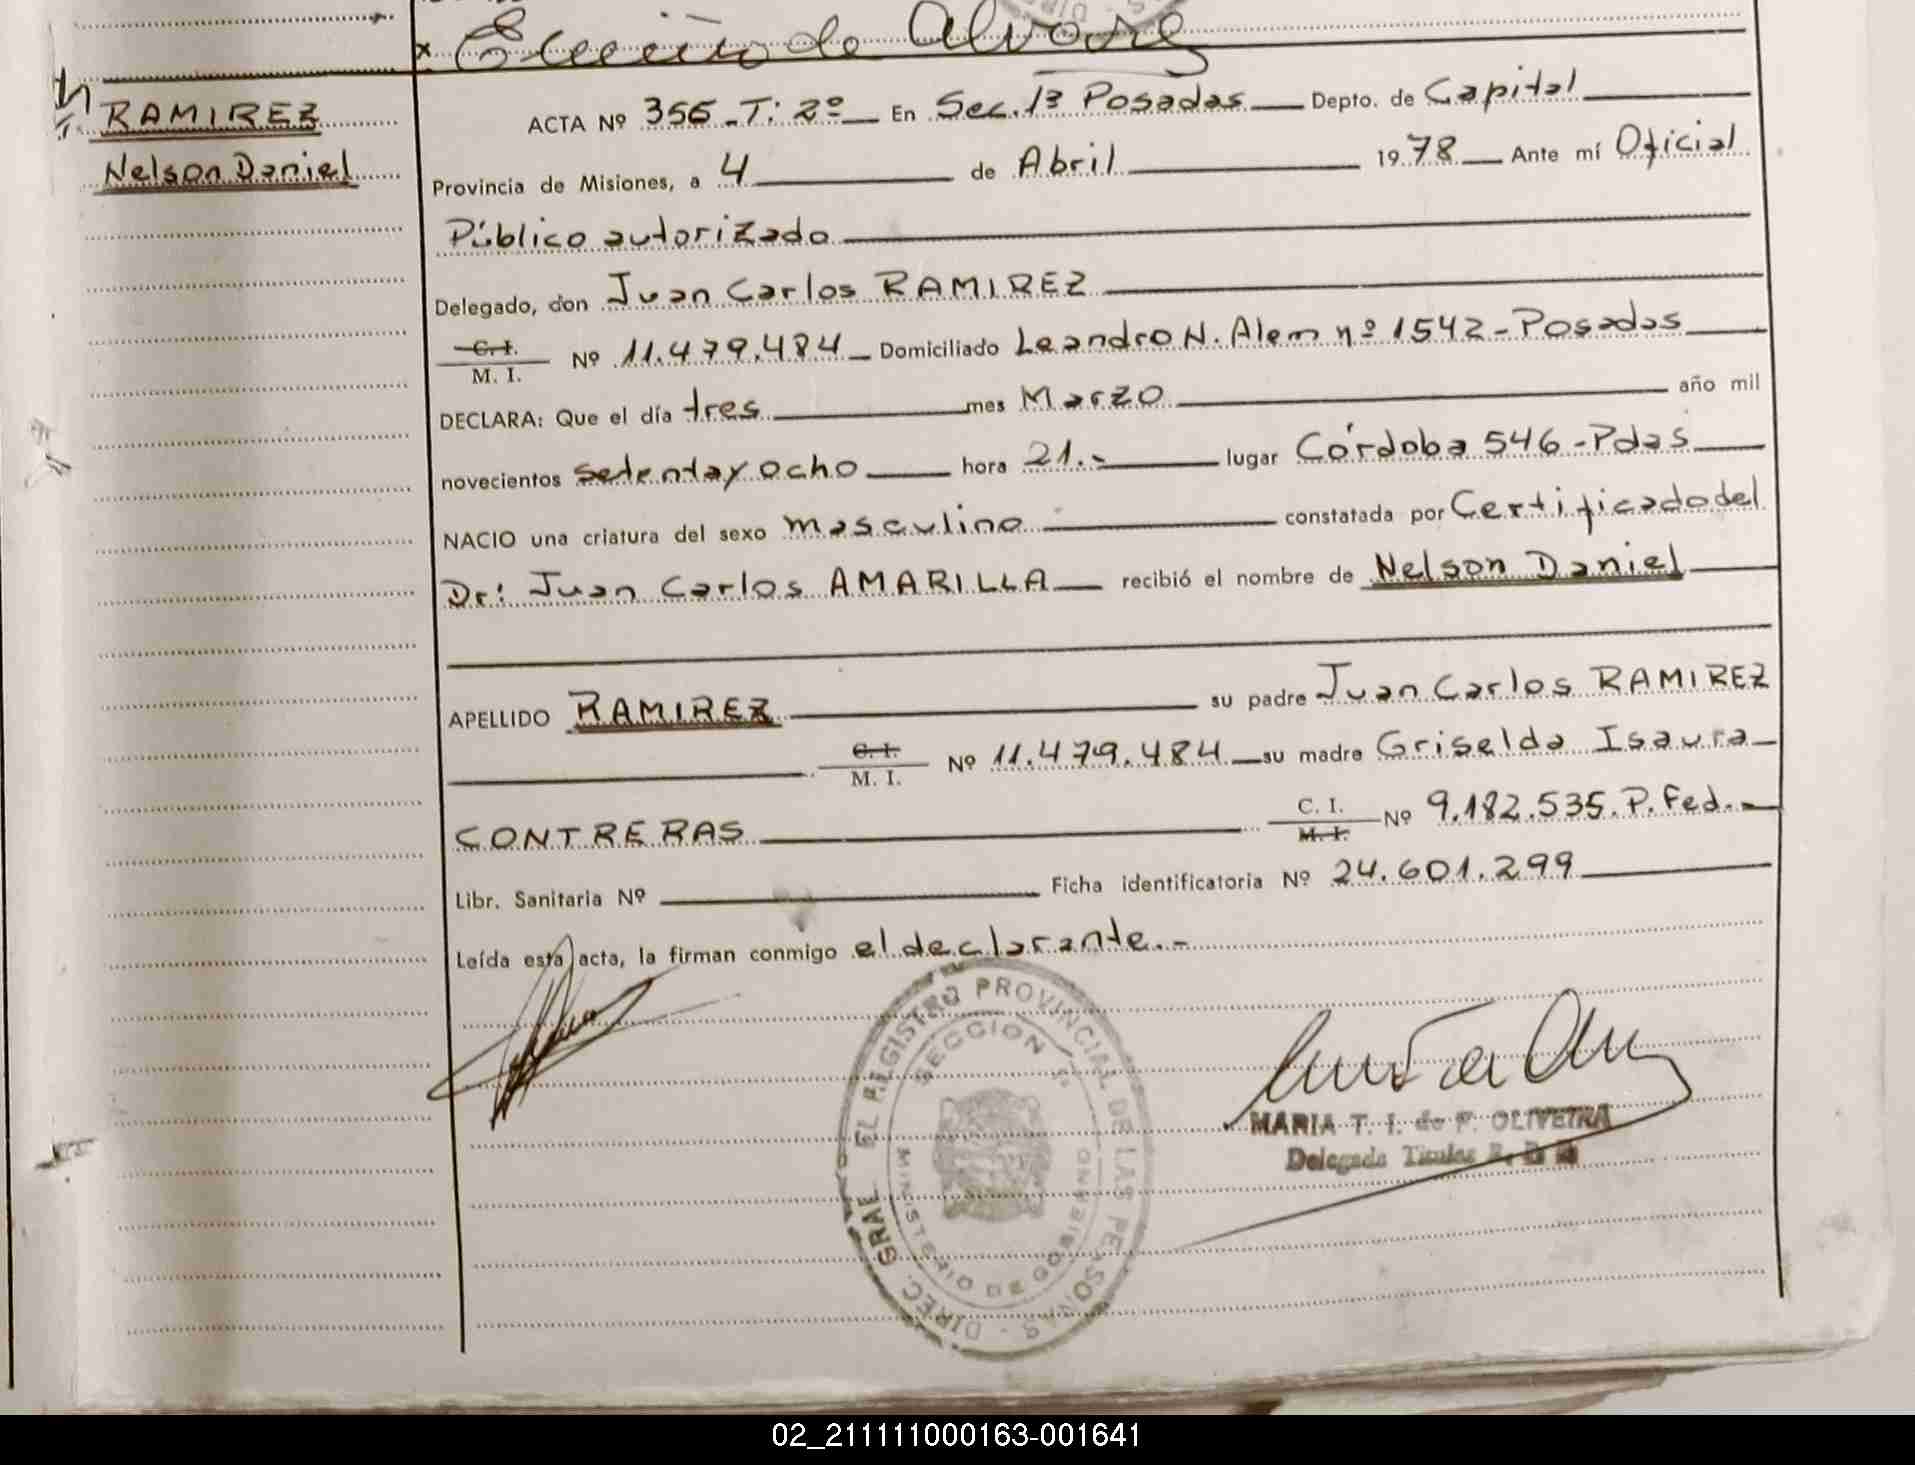 de Alvarez
RAMIREZ
Nelson Daniel
ACTA Nº 356 - T: 2º En Sec. 1ª Posadas Depto. de Capital
Provincia de Misiones, a 4 de Abril 1978 Ante mí Oficial
Público autorizado
Delegado, don Juan Carlos RAMIREZ
C. I. / M. I. Nº 11.479.484 Domiciliado Leandro N. Alem nº 1542 - Posadas
DECLARA: Que el día tres mes Marzo año mil
novecientos setenta y ocho hora 21.- lugar Córdoba 546 - Pdas
NACIO una criatura del sexo masculino constatada por Certificado del
Dr: Juan Carlos AMARILLA recibió el nombre de Nelson Daniel
APELLIDO RAMIREZ su padre Juan Carlos RAMIREZ
C. I. / M. I. Nº 11.479.484 su madre Griselda Isaura
CONTRERAS C. I. / M. I. Nº 9.182.535. P. Fed.-
Libr. Sanitaria Nº Ficha identificatoria Nº 24.601.299
Leída esta acta, la firman conmigo el declarante.-
DIREC. GRAL. REGISTRO PROVINCIAL DE LAS PERSONAS
SECCION 1ª
MINISTERIO DE GOBIERNO
MARIA T. I. de F. OLIVEIRA
Delegada Titular
02_211111000163-001641